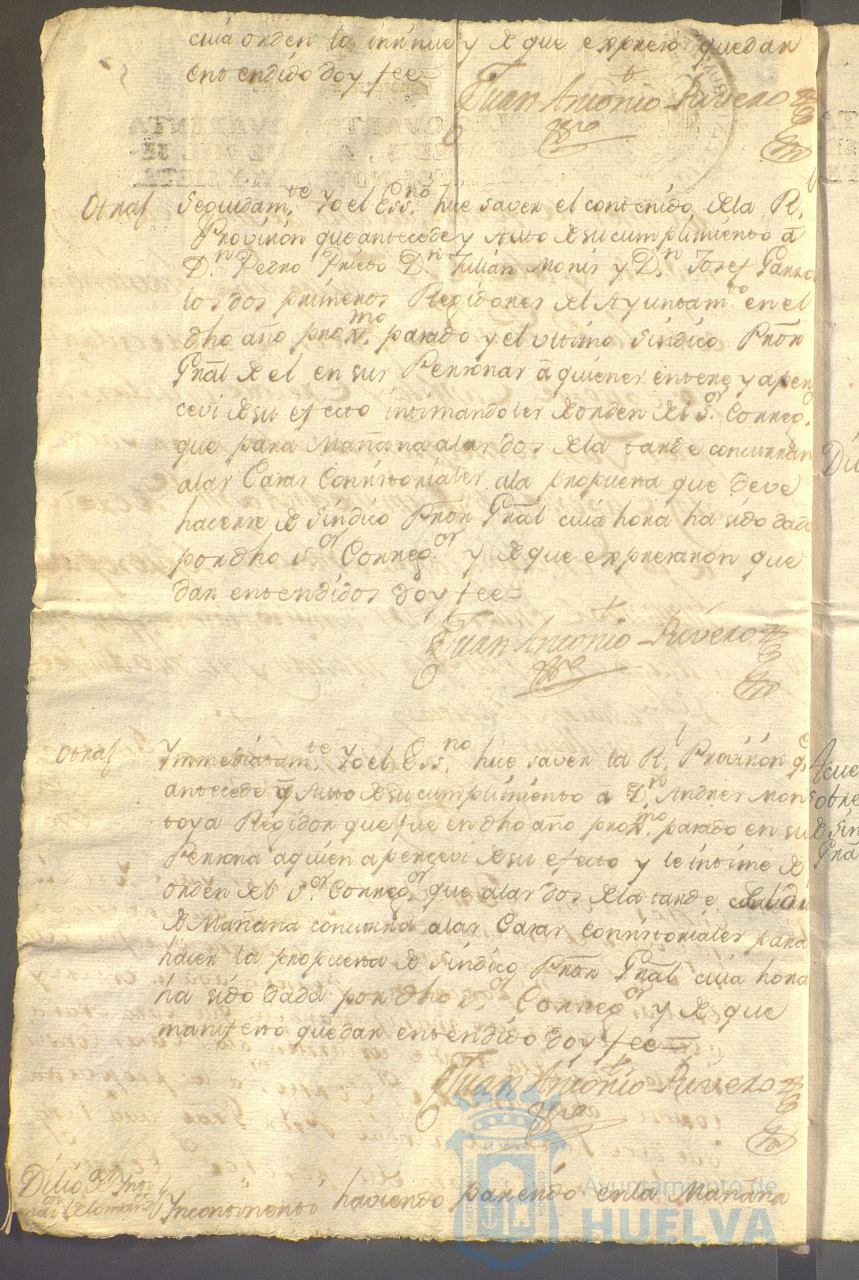 cuia orden le intime y de que expreso quedar
entendido doy fee=
Juan Antonio Rivero
Otras
Seguidam.te Yo el Ess.no hice saver el contenido dela R.
Provision que antecede y Auto de su cumplimiento â
D.n Pedro Prieto D.n Julián Monis y D.n Josef Garzo
los dos primeros Regidores del Ayuntam.to en el
dho año prox.mo pasado y el ultimo Sindico Prôr
Grâl de el en sus Personas â quienes entere y aper
cevi de su efecto intimandoles de orden del S.or Correg.
que para Mañana alas dos dela tarde concurran
alas Casas Consistoriales ala propuesta que deve
hacerse de Sindico Prôr Grâl cuia hora ha sido dada
por dho S.or Correg.or y de que expresaron que
dar entendidos doy fee=
Juan Antonio Rivero
Otras
Immediatam.te Yo el Ess.no hice saver la R.l Provision q.e
antecede y Auto de su cumplimiento a D.n Andres Mon
toya Regidor que fue en dho año prox.mo pasado en su
Persona a quien apercevi de su efecto y le intime de
orden del S.or Correg.or que alas dos dela tarde del dia
de Mañana concurra alas Casas Consistoriales para
hacer la propuesta de Sindico Prôr Grâl cuia hora
ha sido dada por dho S.or Correg.or y de que
manifesto quedar entendido doy fee=
Juan Antonio Rivero
Incontinenti haviendo parecido en la Mañana
Ayuntamiento de
HUELVA